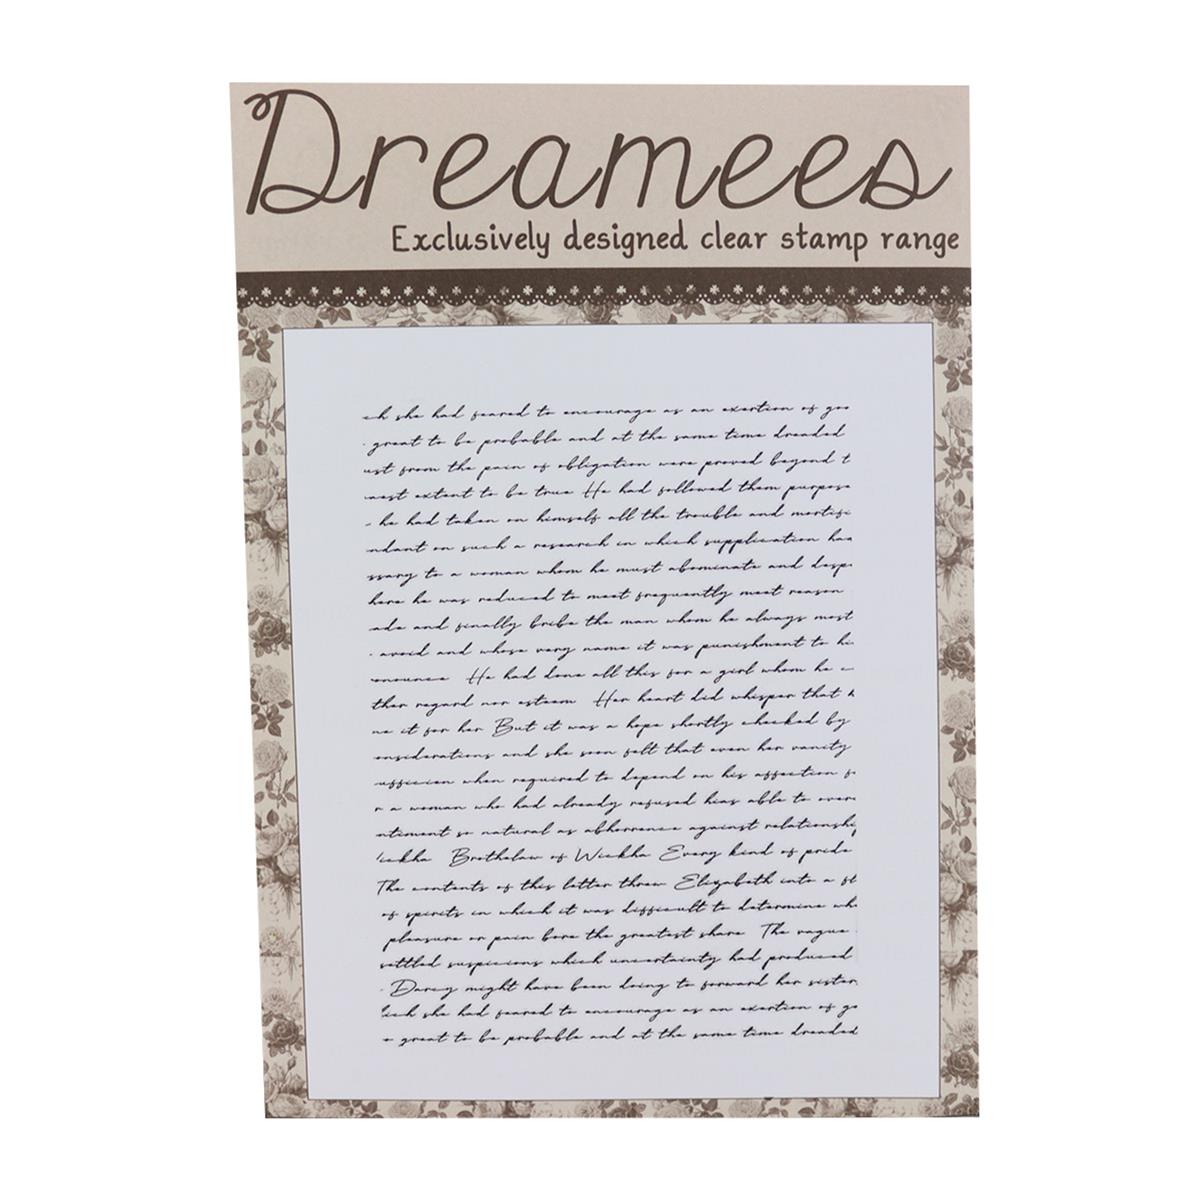 Dreamees
Exclusively designed clear stamp range
ch she had feared to encourage as an exertion of goo
great to be probable and at the same time dreaded
ust from the pain of obligation were proved beyond t
most extent to be true He had followed them purpose
he had taken on himself all the trouble and mortifi
ndant on such a research in which supplication had
ssary to a woman whom he must abominate and desp
here he was reduced to meet frequently meet reason
ade and finally bribe the man whom he always most
avoid and whose very name it was punishment to hi
onounce He had done all this for a girl whom he c
ther regard nor esteem Her heart did whisper that h
ne it for her But it was a hope shortly checked by
onsiderations and she soon felt that even her vanity
ufficien when required to depend on his affection f
r a woman who had already refused hias able to over
ntiment so natural as abhorrence against relationshi
ickha Brothelaw of Wickha Every kind of pride
The contents of this letter threw Elizabeth into a fl
of spirits in which it was difficult to determine wh
pleasure or pain bore the greatest share The vague
settled suspicions which uncertainty had produced
Darcy might have been doing to forward her sister
hich she had feared to encourage as an exertion of go
o great to be probable and at the same time dreaded